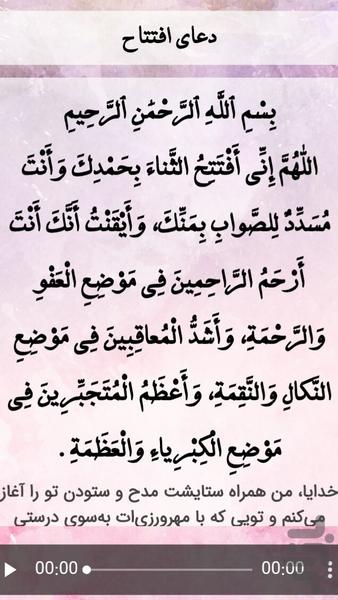 دعای افتتاح
بِسْمِ ٱللَّهِ ٱلرَّحْمَٰنِ ٱلرَّحِيمِ
اللّٰهُمَّ إِنِّى أَفْتَتِحُ الثَّناءَ بِحَمْدِكَ وَأَنْتَ
مُسَدِّدٌ لِلصَّوابِ بِمَنِّكَ، وَأَيْقَنْتُ أَنَّكَ أَنْتَ
أَرْحَمُ الرَّاحِمِينَ فِى مَوْضِعِ الْعَفْوِ
وَالرَّحْمَةِ، وَأَشَدُّ الْمُعاقِبِينَ فِى مَوْضِعِ
النَّكالِ وَالنَّقِمَةِ، وَأَعْظَمُ الْمُتَجَبِّرِينَ فِى
مَوْضِعِ الْكِبْرِياءِ وَالْعَظَمَةِ .
خدایا، من همراه ستایشت مدح و ستودن تو را آغاز
می‌کنم و تویی که با مهرورزی‌ات به‌سوی درستی
00:00 00:00